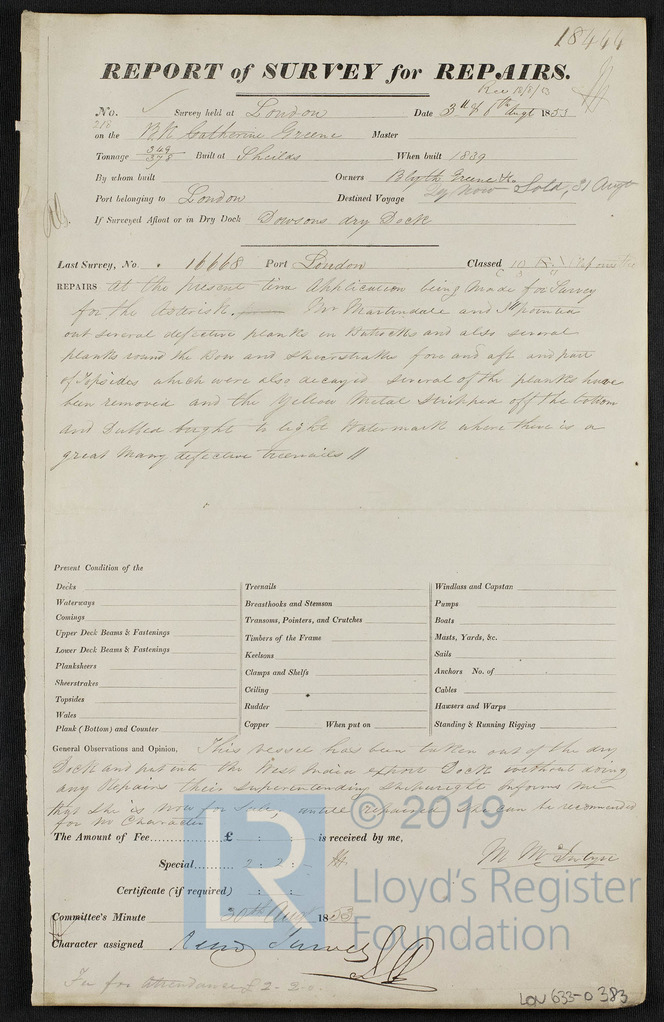 18444
REPORT of SURVEY for REPAIRS.
Rec 18/8/53
No. Survey held at London Date 3rd & 6th Augt 1853
218
on the Bk Catherine Greene Master
Tonnage 349/378 Built at Sheilds When built 1839
By whom built Owners Blyth Greene & Co
Port belonging to London Destined Voyage Sold, 31 Augt
If Surveyed Afloat or in Dry Dock Dowsons dry Dock
Last Survey, No. 16668 Port London Classed
REPAIRS At the present time Application being made for Survey
for the Asterisk. Mr Martindale and I pointed
out several defective planks in Buttocks and also several
planks round the Bow and Sheerstrake fore and aft and part
of Topsides which were also decayed several of the planks have
been removed and the Yellow Metal stripped off the bottom
and Dubbed bright to light Watermark where there is a
great Many defective treenails
Present Condition of the
Decks
Waterways
Comings
Upper Deck Beams & Fastenings
Lower Deck Beams & Fastenings
Planksheers
Sheerstrakes
Topsides
Wales
Plank (Bottom) and Counter
Treenails
Breasthooks and Stemson
Transoms, Pointers, and Crutches
Timbers of the Frame
Keelsons
Clamps and Shelfs
Ceiling
Rudder
Copper When put on
Windlass and Capstan
Pumps
Boats
Masts, Yards, &c.
Sails
Anchors No. of
Cables
Hawsers and Warps
Standing & Running Rigging
General Observations and Opinion, This vessel has been taken out of the dry
Dock and put into the West India export Dock without doing
any Repairs their Superintending Shipwright informs me
that she is Now for Sale, until repaired She can be recommended
for no Character
The Amount of Fee...... £ : : is received by me,
Special........ 2 : 2 : M McIntyre
Certificate (if required) : :
Committee's Minute 30th Augt 1853
Character assigned
Fee for Attendance £ 2. 2. 0
LON 633-0383
© 2019
LR
Lloyd's Register
Foundation